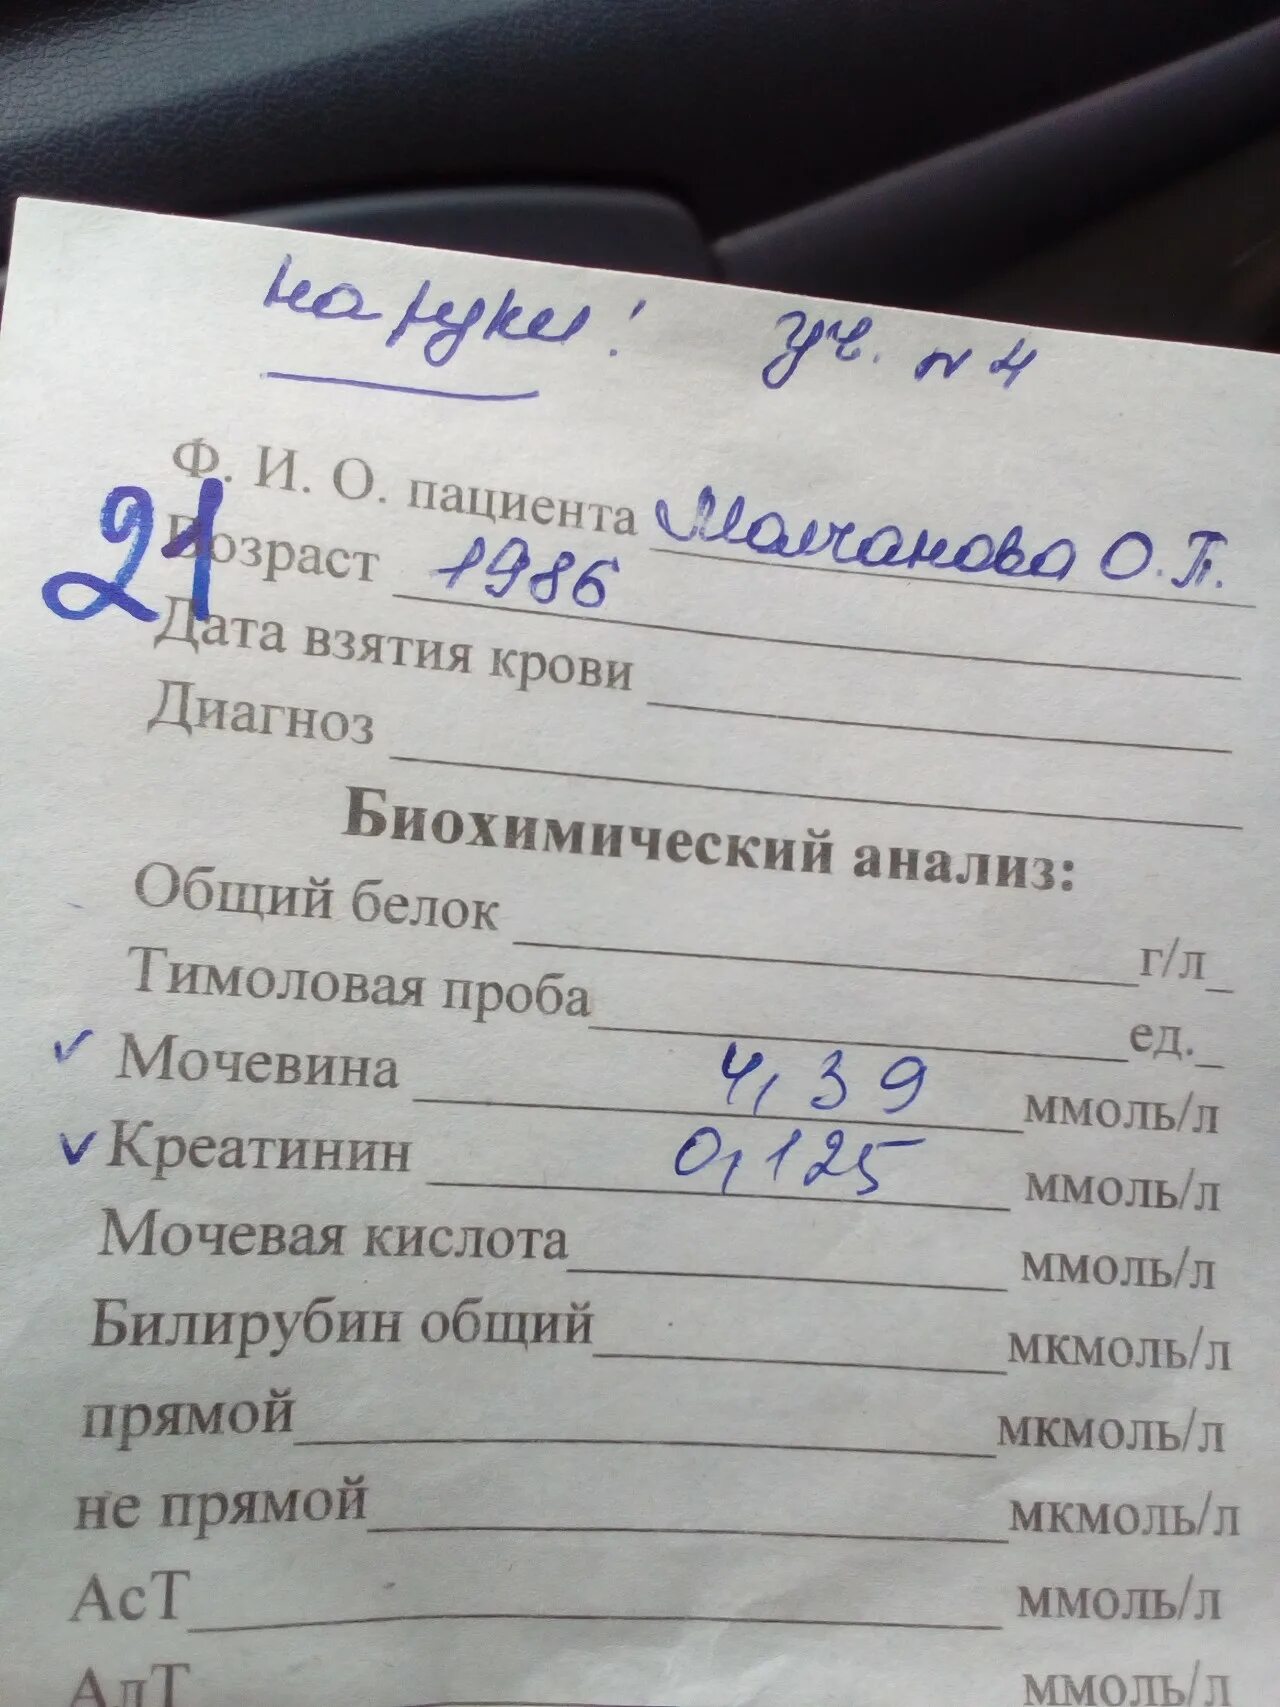 на руки! уч. N 4
Ф. И. О. пациента Молчанова О.П.
21 Возраст 1986
Дата взятия крови
Диагноз
Биохимический анализ:
Общий белок г/л
Тимоловая проба ед.
Мочевина 4,39 ммоль/л
Креатинин 0,125 ммоль/л
Мочевая кислота ммоль/л
Билирубин общий мкмоль/л
прямой мкмоль/л
не прямой мкмоль/л
АсТ ммоль/л
АлТ ммоль/л